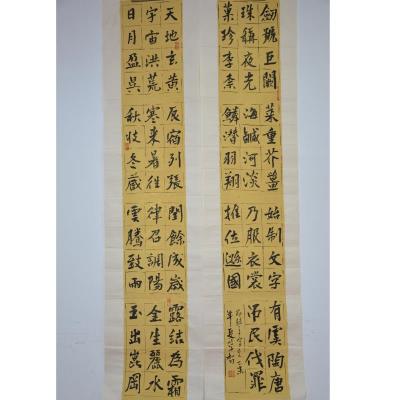 天地玄黃
宇宙洪荒
日月盈昃
辰宿列張
寒來暑往
秋收冬藏
閏餘成歲
律召調陽
雲騰致雨
露結為霜
金生麗水
玉出崑岡
劍號巨闕
珠稱夜光
菓珍李柰
菜重芥薑
海鹹河淡
鱗潛羽翔
始制文字
乃服衣裳
推位遜國
有虞陶唐
吊民伐罪